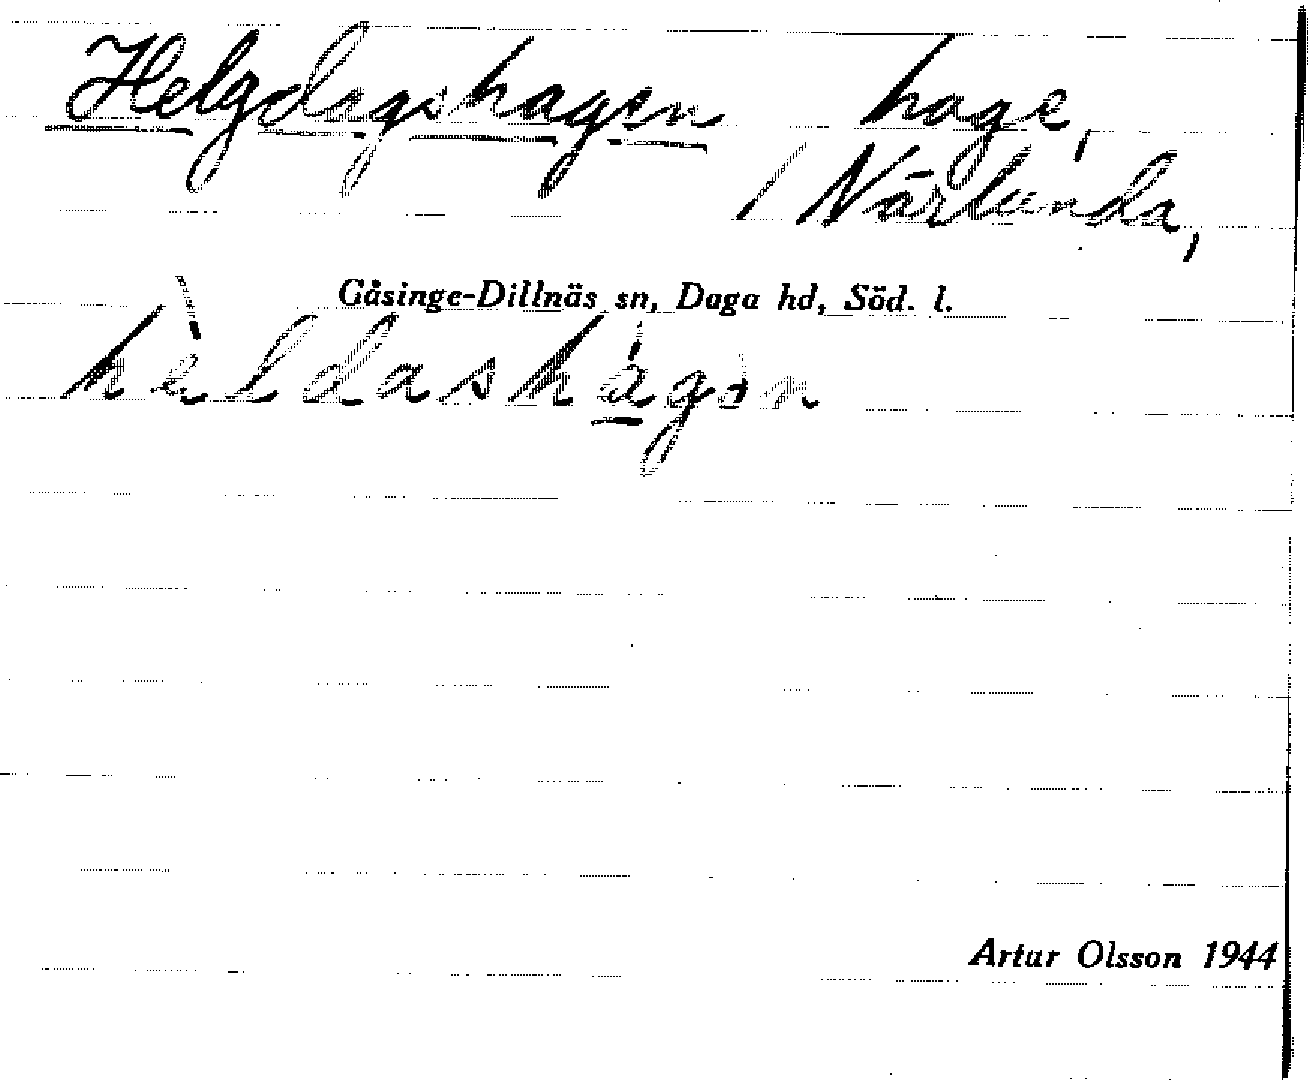 Helgdagshagen hage,
/ Närlunda,
Gåsinge-Dillnäs sn, Daga hd, Söd. l.
hèldashágən
Artur Olsson 1944